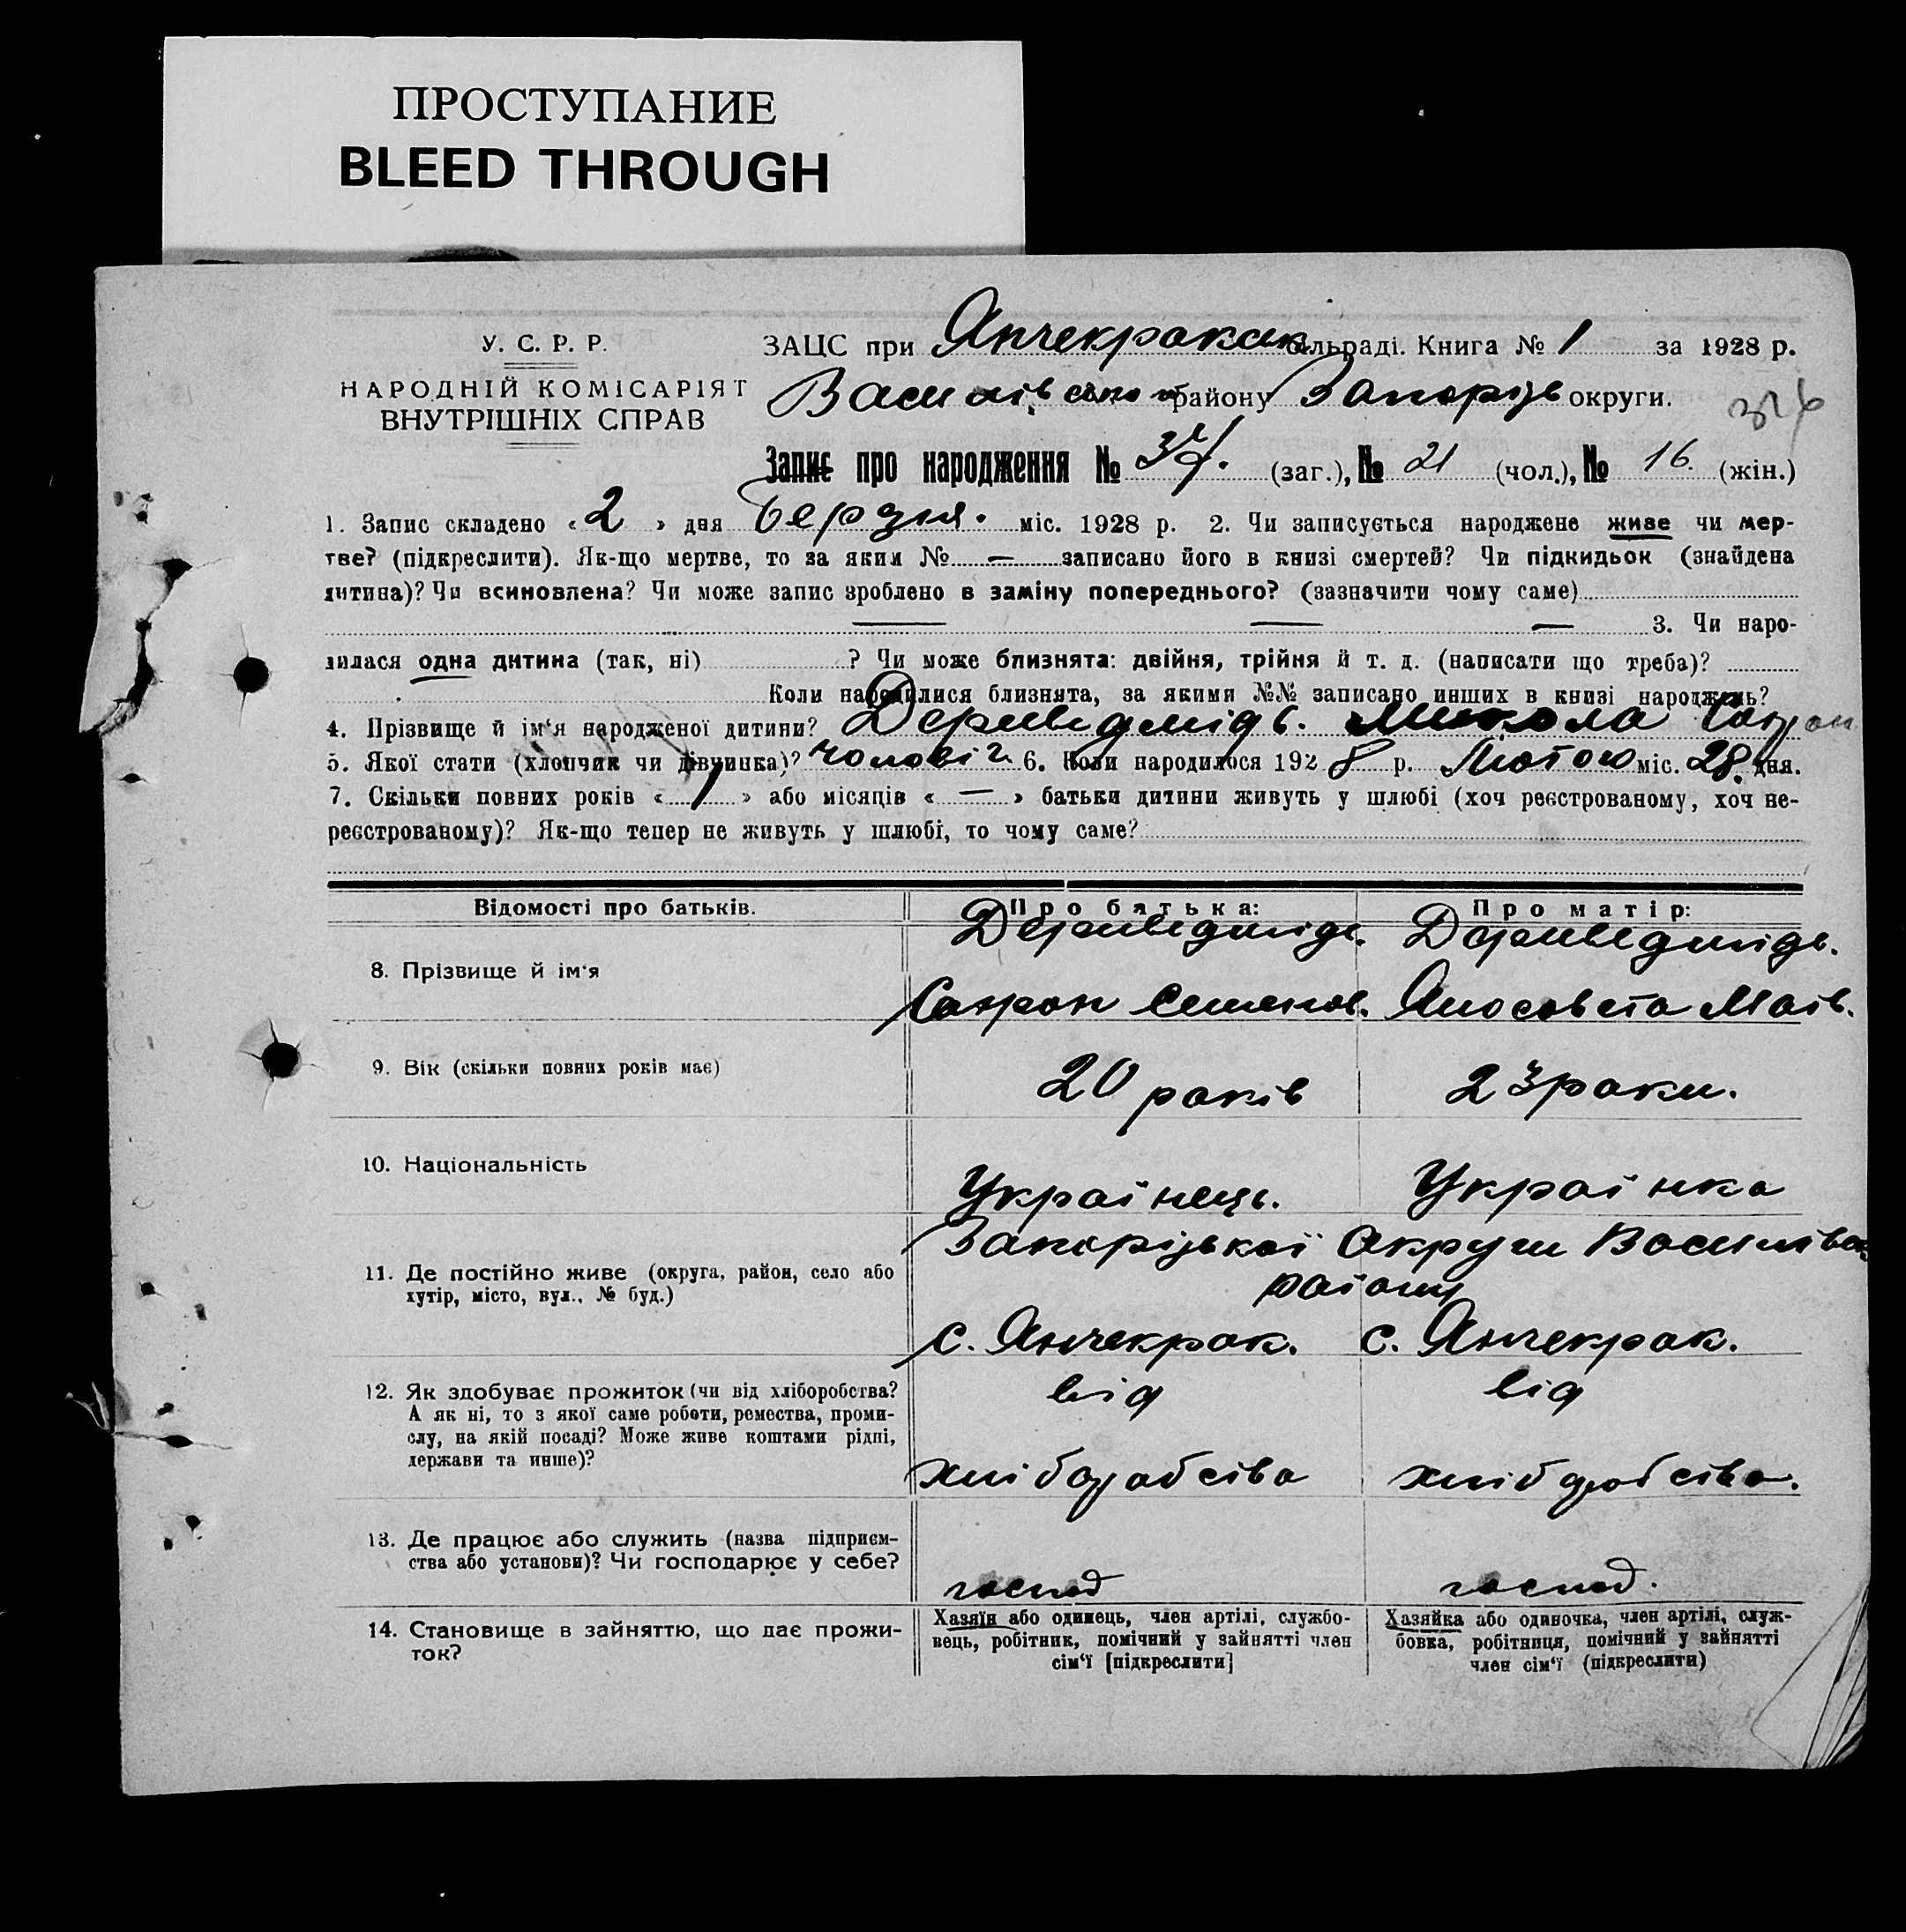 ПРОСТУПАНИЕ
BLEED THROUGH
У. С. Р. Р.
НАРОДНІЙ КОМІСАРІЯТ
ВНУТРІШНІХ СПРАВ
ЗАЦС при Янчекракск сільраді. Книга № 1 за 1928 р.
Василівського району Запорізь округи.
Запис про народження № 37. (заг.), № 21 (чол.), № 16. (жін.)
1. Запис складено «2» дня березня. міс. 1928 р. 2. Чи записується народжене живе чи мер-
тве? (підкреслити). Як-що мертве, то за яким № — записано його в книзі смертей? Чи підкидьок (знайдена
дитина)? Чи всиновлена? Чи може запис зроблено в заміну попереднього? (зазначити чому саме)
— — — 3. Чи наро-
дилася одна дитина (так, ні) ? Чи може близнята: двійня, трійня й т. д. (написати що треба)?
Коли народилися близнята, за якими №№ записано инших в книзі народжень?
4. Прізвище й ім‘я народженої дитини? Дериведмідь. Микола Сафрон
5. Якої стати (хлопчик чи дівчинка)? чоловіч 6. Коли народилося 1928 р. Лютого міс. 28 дня.
7. Скільки повних років «1» або місяців «—» батьки дитини живуть у шлюбі (хоч реєстрованому, хоч не-
реєстрованому)? Як-що тепер не живуть у шлюбі, то чому саме?
Відомості про батьків. Про батька: Про матір:
8. Прізвище й ім‘я Дериведмідь. Дериведмідь.
Сафрон Семенов. Матв.
9. Вік (скільки повних років має) 20 років 23 роки.
10. Національність Українець. Українка
11. Де постійно живе (округа, район, село або
хутір, місто, вул., № буд.) Запорізької Округи Василівськ
району
с. Янчекрак. с. Янчекрак.
12. Як здобуває прожиток (чи від хліборобства?
А як ні, то з якої саме роботи, ремества, проми-
слу, на якій посаді? Може живе коштами рідні,
держави та инше)? від від
хліборобства хліборобства.
13. Де працює або служить (назва підприєм-
ства або установи)? Чи господарює у себе? господ господ.
14. Становище в зайняттю, що дає прожи-
ток?
Хазяїн або одинець, член артілі, службо-
вець, робітник, помічний у зайнятті член
сім‘ї [підкреслити]
Хазяйка або одиночка, член артілі, служ-
бовка, робітниця, помічний у зайнятті
член сім‘ї (підкреслити)